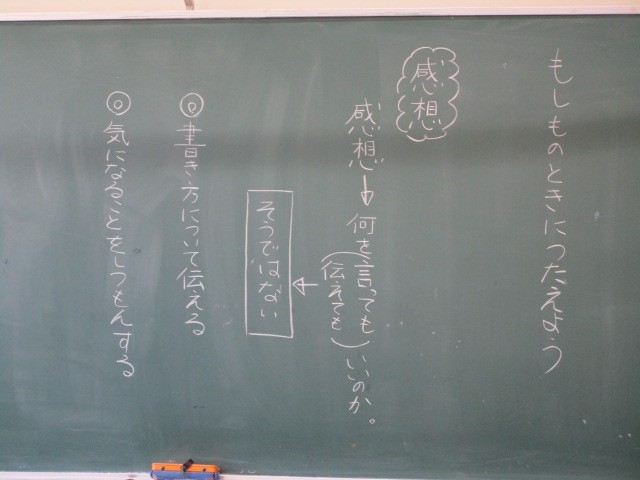 もしものときにつたえよう
感想
感想→何を言っても(伝えても)いいのか。
←
そうではない
◎書き方について伝える
◎気になることをしつもんする